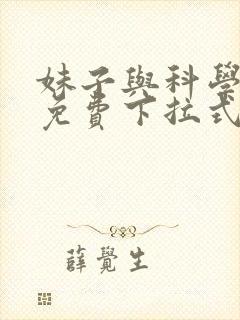 妹子與科學
免費下拉式
薛覺生